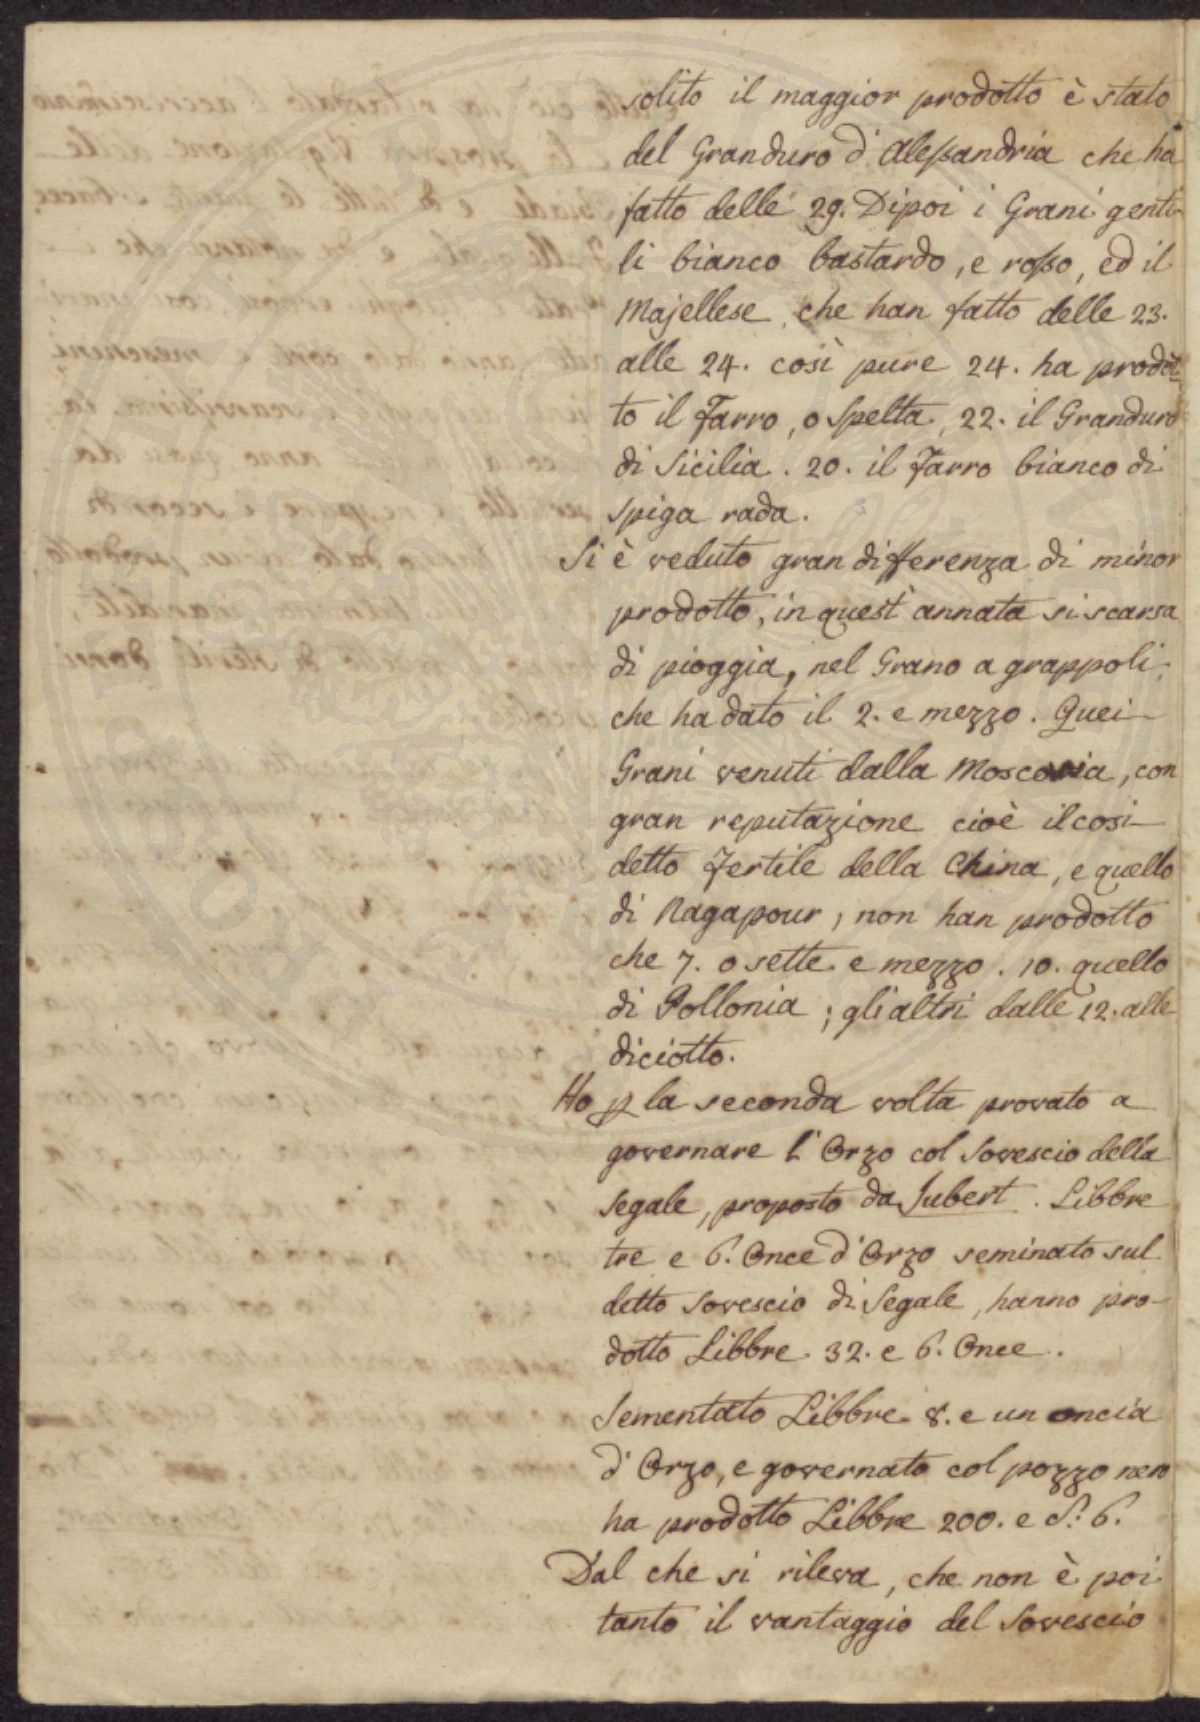 solito il maggior prodotto è stato
del Granduro d'Alessandria che ha
fatto delle 29. Dipoi i Grani genti-
li bianco bastardo, e rosso, ed il
Majellese, che han fatto delle 23.
alle 24. così pure 24. ha prodot-
to il Farro, o Spelta, 22. il Granduro
di Sicilia. 20. il Farro bianco di
spiga rada.
Si è veduto gran differenza di minor
prodotto, in quest'annata si scarsa
di pioggia, nel Grano a grappoli
che ha dato il 2. e mezzo. Quei
Grani venuti dalla Moscovia, con
gran reputazione cioè il cosi
detto Fertile della China, e quello
di Nagapour, non han prodotto
che 7. o sette e mezzo. 10. quello
di Pollonia; gli altri dalle 12. alle
diciotto.
Ho p la seconda volta provato a
governare l'Orzo col Sovescio della
Segale, proposto da Jubert. Libbre
tre e 6. Once d'Orzo seminato sul
detto Sovescio di Segale, hanno pro-
dotto Libbre 32. e 6. Once.
Sementato Libbre 8. e un oncia
d'Orzo, e governato col pozzo nero
ha prodotto Libbre 200. e 6.
Dal che si rileva, che non è poi
tanto il vantaggio del Sovescio